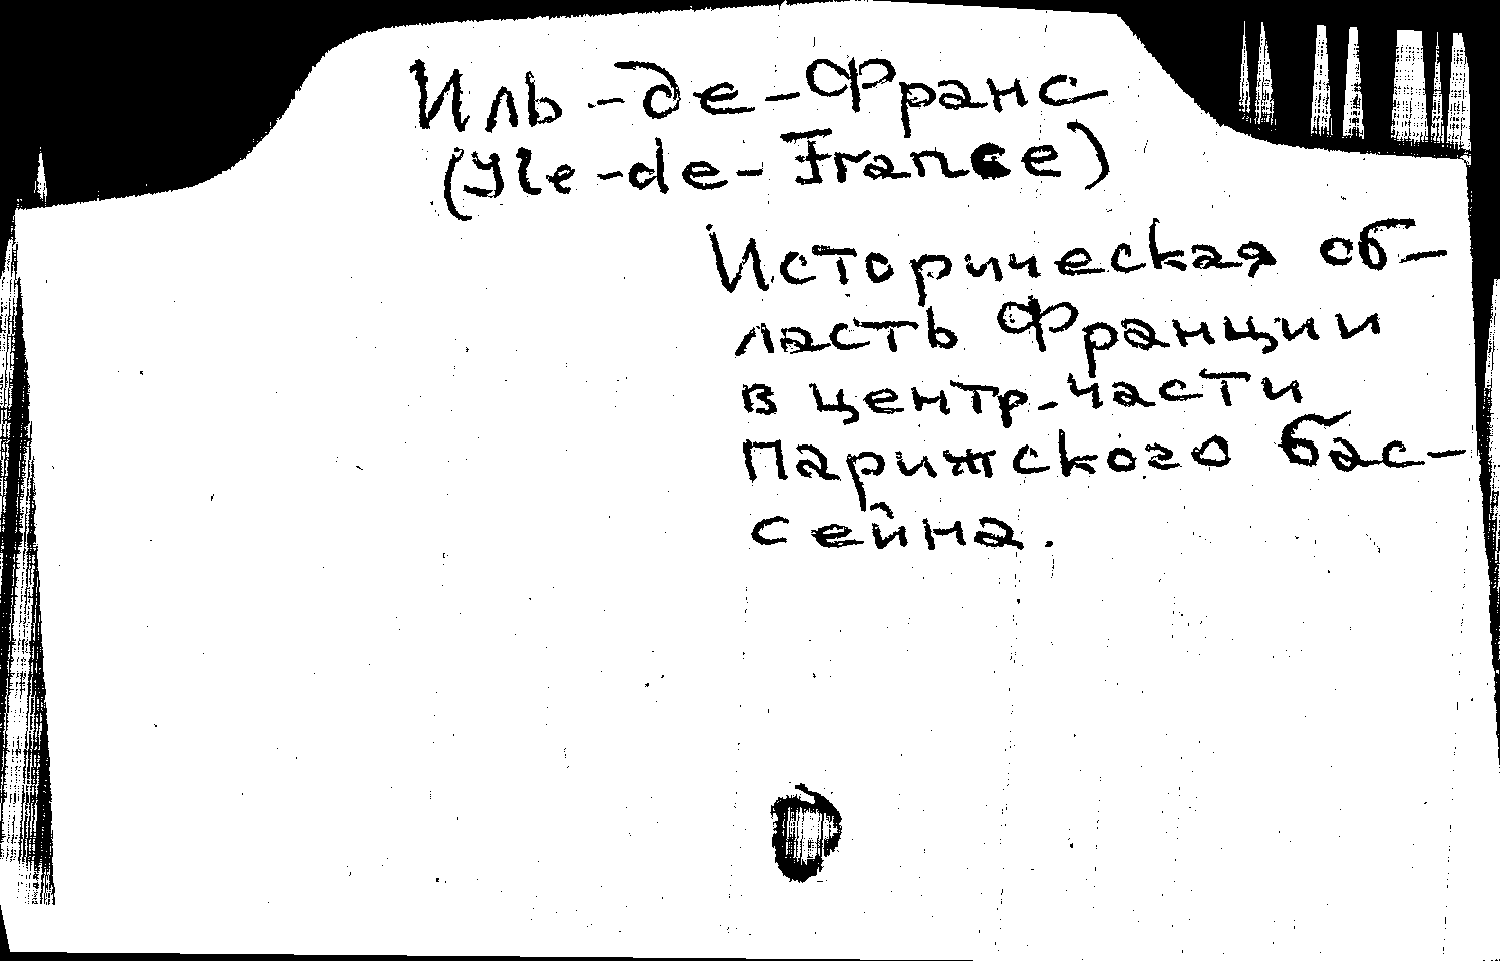 Иль-де-Франс
(Yle-de-France)
Историческая об-
ласть Франции
в центр. части
Парижского бас-
сейна.